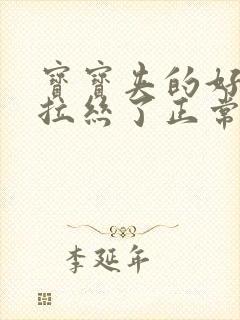 寶寶夹的好
拉絲了正常
李延年